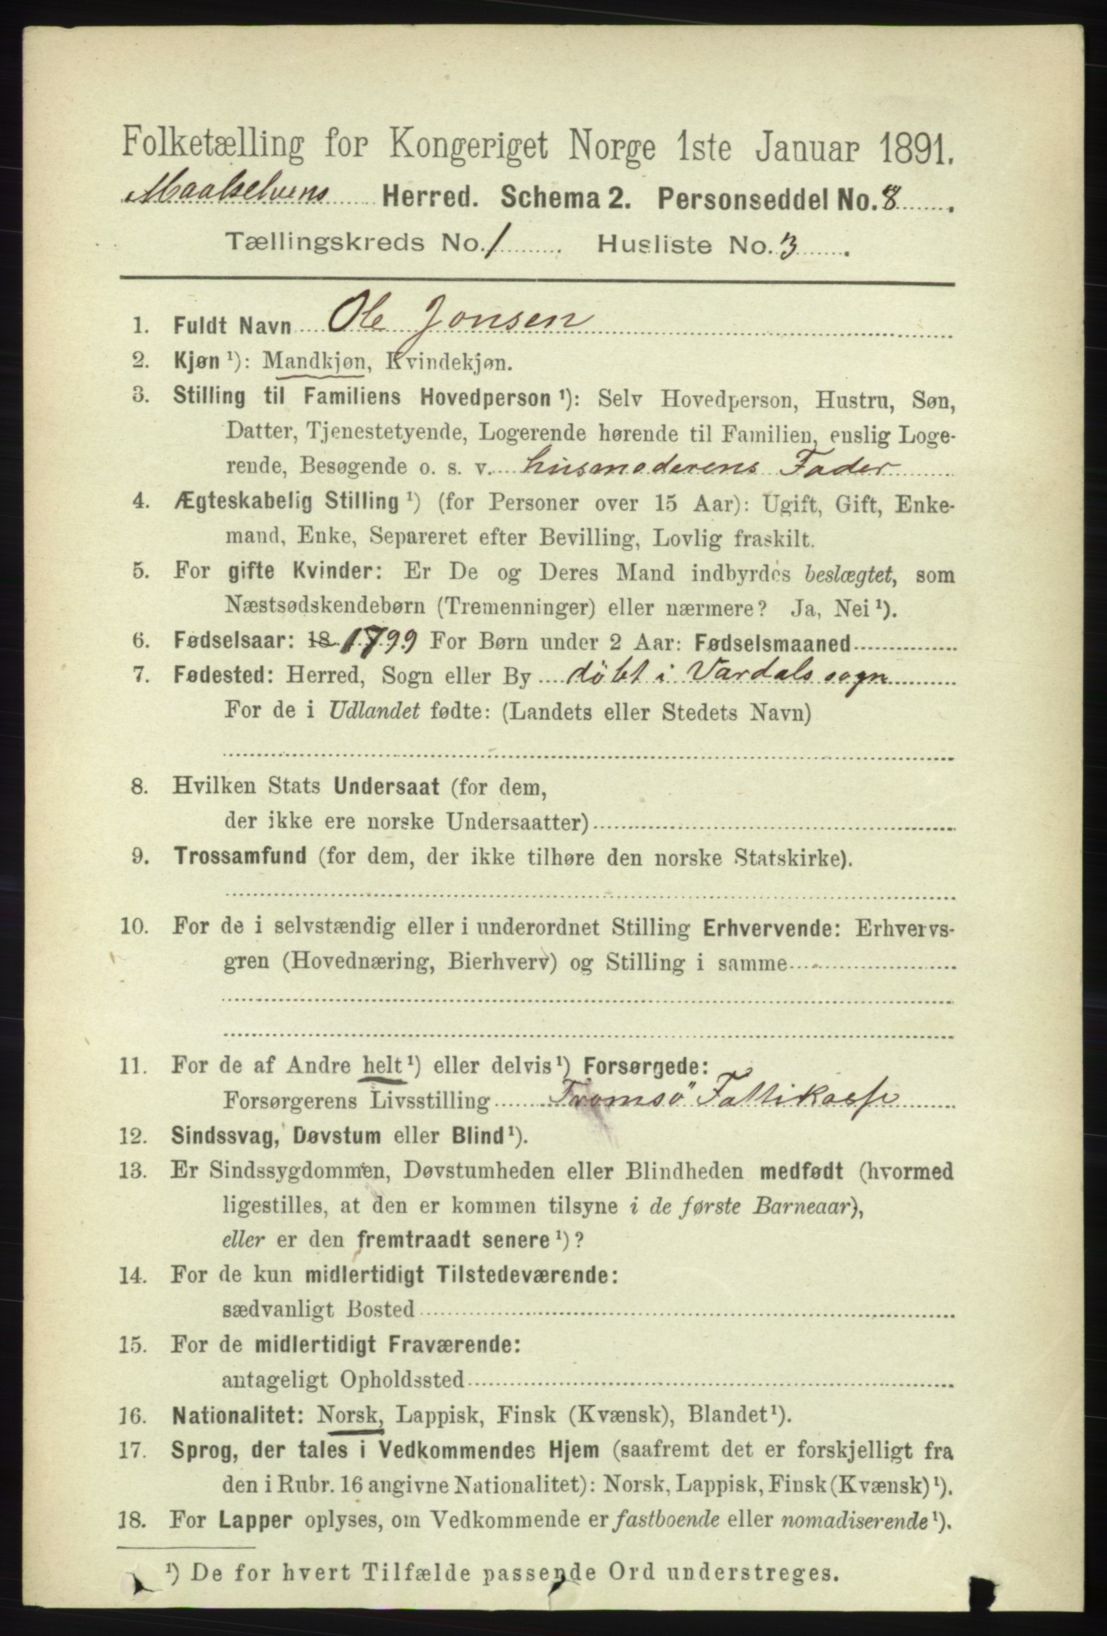 Folketælling for Kongeriget Norge 1ste Januar 1891.
Maalselvens Herred. Schema 2. Personseddel No. 8.
Tællingskreds No. 1 Husliste No. 3.
1. Fuldt Navn Ole Jonsen
2. Kjøn ¹): Mandkjøn, Kvindekjøn.
3. Stilling til Familiens Hovedperson ¹): Selv Hovedperson, Hustru, Søn,
Datter, Tjenestetyende, Logerende hørende til Familien, enslig Loge-
rende, Besøgende o. s. v. husmoderens Fader
4. Ægteskabelig Stilling ¹) (for Personer over 15 Aar): Ugift, Gift, Enke-
mand, Enke, Separeret efter Bevilling, Lovlig fraskilt.
5. For gifte Kvinder: Er De og Deres Mand indbyrdes beslægtet, som
Næstsødskendebørn (Tremenninger) eller nærmere? Ja, Nei ¹).
6. Fødselsaar: 18 1799 For Børn under 2 Aar: Fødselsmaaned
7. Fødested: Herred, Sogn eller By döbt i Vardals sogn
For de i Udlandet fødte: (Landets eller Stedets Navn)
8. Hvilken Stats Undersaat (for dem,
der ikke ere norske Undersaatter)
9. Trossamfund (for dem, der ikke tilhøre den norske Statskirke).
10. For de i selvstændig eller i underordnet Stilling Erhvervende: Erhvervs-
gren (Hovednæring, Bierhverv) og Stilling i samme
11. For de af Andre helt ¹) eller delvis ¹) Forsørgede:
Forsørgerens Livsstilling Tromsö Fattikasse
12. Sindssvag, Døvstum eller Blind ¹).
13. Er Sindssygdommen, Døvstumheden eller Blindheden medfødt (hvormed
ligestilles, at den er kommen tilsyne i de første Barneaar),
eller er den fremtraadt senere ¹)?
14. For de kun midlertidigt Tilstedeværende:
sædvanligt Bosted
15. For de midlertidigt Fraværende:
antageligt Opholdssted
16. Nationalitet: Norsk, Lappisk, Finsk (Kvænsk), Blandet ¹).
17. Sprog, der tales i Vedkommendes Hjem (saafremt det er forskjelligt fra
den i Rubr. 16 angivne Nationalitet): Norsk, Lappisk, Finsk (Kvænsk) ¹).
18. For Lapper oplyses, om Vedkommende er fastboende eller nomadiserende ¹).
¹) De for hvert Tilfælde passende Ord understreges.